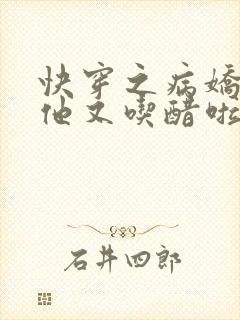 快穿之病嬌
他又喫醋啦
石井四郎